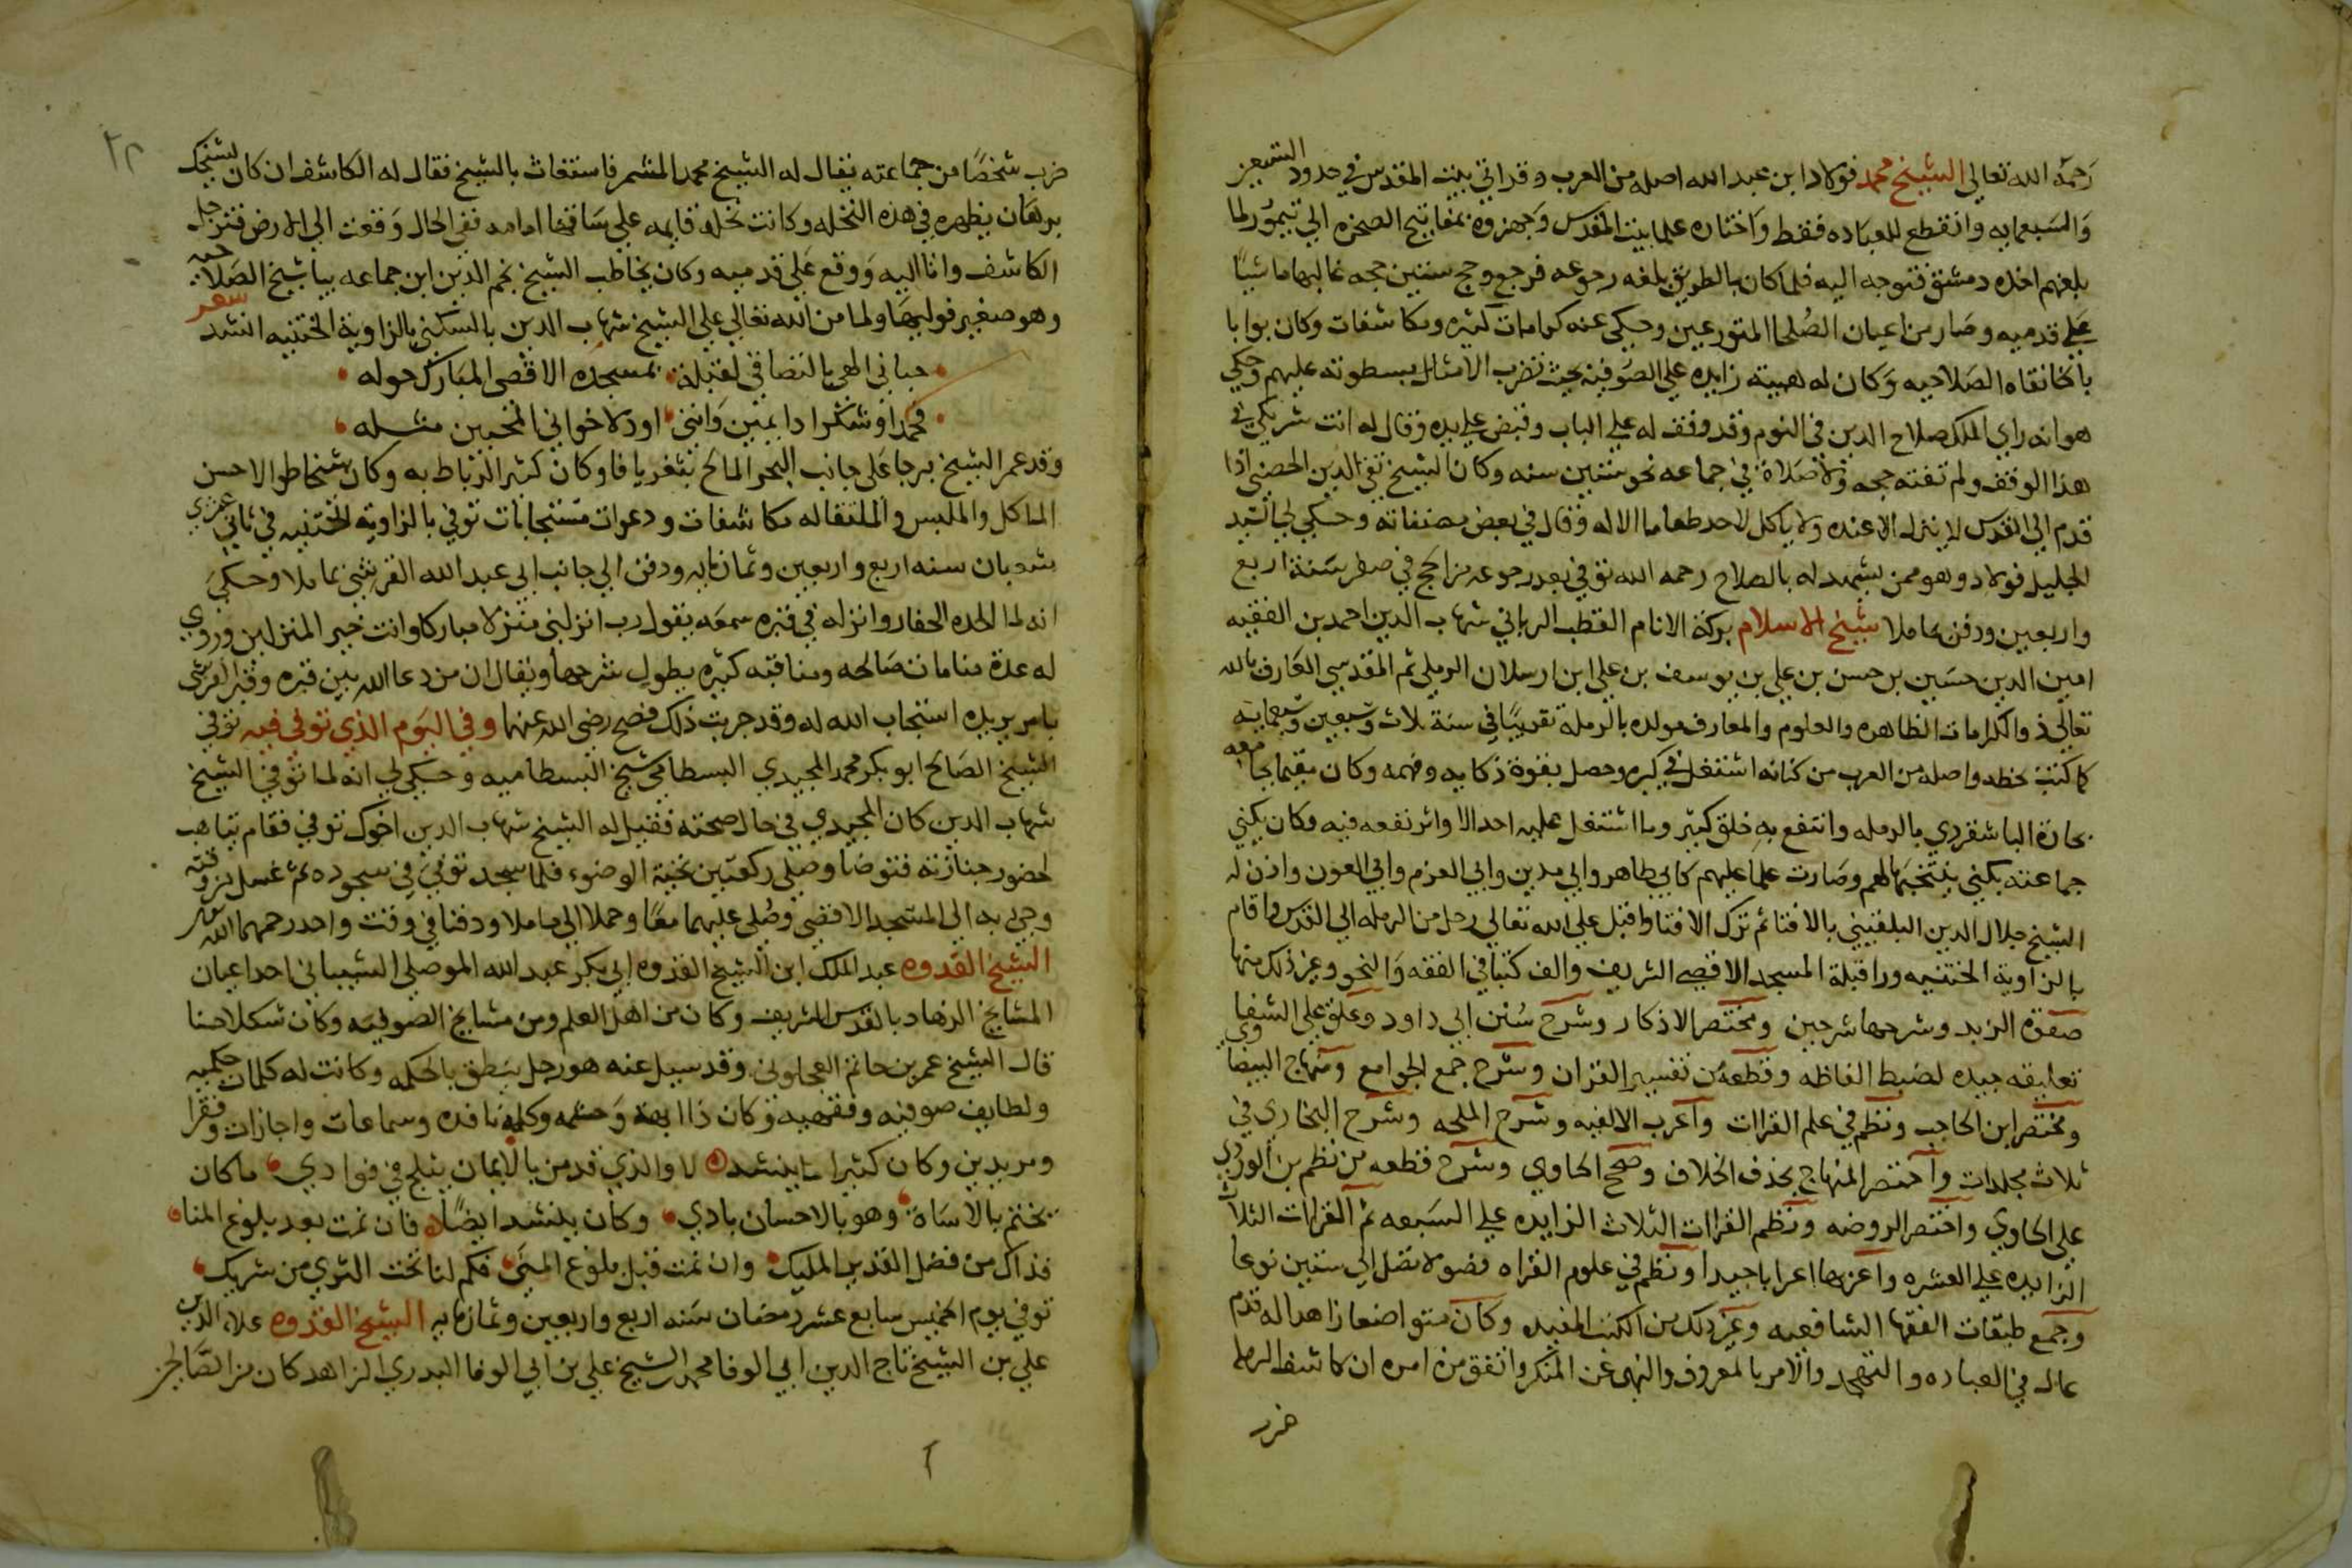 رحمه الله تعالي الشيخ محمد فولاد ابن عبد الله اصله من العرب وقد اتي بيت المقدس في حدود التسعين
والسبعمايه وانقطع للعباده فقط واختاره علما بيت المقدس وجهزوه بمفاتيح الصخره الي تيمور لما
بلغهم اخذه دمشق فتوجه اليه فلما كان بالطريق بلغه رجوعه فرجع وحج ستين حجه غالبها ماشيًا
علي قدميه وصار من اعيان الصلحا المتورعين وحكي عنه كرامات كثيره ومكاشفات وكان بوابا
بالخانقاه الصلاحيه وكان له هيبته زايده علي الصوفيه بحيث تضرب الامثال بسطوته عليهم وحكي
هو انه راي الملك صلاح الدين في النوم وقد وقف له علي الباب وقبض علي يده وقال له انت شريكي في
هذا الوقف ولم تفته حجه ولا صلاة في جماعه نحو ستين سنه وكان الشيخ تقي الدين الحصني اذا
قدم الي القدس لا ينزل الا عنده ولا ياكل لاحد طعاما الا له وقال في بعض مصنفاته وحكي لي السيد
الجليل فولاد وهو ممن يشهد له بالصلاح رحمه الله توفي بعد رجوعه من الحج في صفر سنة اربع
واربعين ودفن بماملا شيخ الاسلام بركة الانام القطب الرباني شهاب الدين احمد بن الفقيه
امين الدين حسين بن حسن بن علي بن يوسف بن علي ابن ارسلان الرملي ثم المقدسي العارف بالله
تعالي ذو الكرامات الظاهره والعلوم والمعارف مولده بالرملة تقريبًا في سنة ثلاث وسبعين وسبعمايه
كما كتبت خطه واصله من العرب من كنانه اشتغل في كبره وحصل بقوة ذكايه وفهمه وكان مقيما بجامعه
بحارة الباشقردي بالرمله وانتفع به خلق كثير وما اشتغل عليه احد الا واثر نفعه فيه وكان يكني
جماعته بكني ينتخبها لهم وصارت علما عليهم كابي طاهر وابي مدين وابي العزم وابي العون واذن له
الشيخ جلال الدين البلقيني بالافتا ثم ترك الافتا واقبل علي الله تعالي رحل من الرمله الي القدس واقام
بالزاوية الختنيه ورا قبلة المسجد الاقصي الشريف والف كتبا في الفقه والنحو وغير ذلك منها
صفوة الزبد وشرحها شرحين ومختصر الاذكار وشرح سُنن ابي داود وعلق علي الشفا
تعليقه جيده لضبط الفاظه وقطعه من تفسير القران وشرح جمع الجوامع ومنهاج البيضاوي
ومختصر ابن الحاجب ونظم في علم القراات واعرب الالفيه وشرح الملحه وشرح البخاري في
ثلاث مجلدات واختصر المنهاج بحذف الخلاف وصحح الحاوي وشرح قطعه من نظم بن الوردي
علي الحاوي واختصر الروضه ونظم القراات الثلاث الزايده علي السبعه ثم القراات الثلاث
الزايده علي العشره واعربها اعرابا جيدا ونظم في علوم القراه فصولا تصل الي ستين نوعا
وجمع طبقات الفقها الشافعيه وغير ذلك من الكتب المفيده وكان متواضعا زاهدا له قدم
عال في العباده والتهجد والامر بالمعروف والنهي عن المنكر واتفق من امره ان كاشف الرمله
ضرب
ضرب شخصًا من جماعته يقال له الشيخ محمد المشمر فاستغاث بالشيخ فقال له الكاشف ان كان لشيخك
برهان يظهره في هذه النخله وكانت نخله قايمه علي ساقها امامه ففي الحال وقعت الي الارض فترجل
الكاشف واتا اليه ووقع علي قدميه وكان يخاطب الشيخ نجم الدين ابن جماعه بياشيخ الصلاحيه
وهو صغير فوليها ولما من الله تعالي علي الشيخ شهاب الدين بالسكني بالزاوية الختنيه انشد شعر
حباني الهي بالتصافي لقبلة بمسجده الاقصي المبارك حوله
فحمدا وشكرا دايمين وانني اود لاخواني المحبين مثله
وقد عمر الشيخ برجا علي جانب البحر المالح بثغر يافا وكان كثير الرباط به وكان شخاطوالا حسن
الماكل والملبس والملتقا له مكاشفات ودعوات مستجابات توفي بالزاوية الختنيه في ثاني عشري
شعبان سنه اربع واربعين وثمانمايه ودفن الي جانب ابي عبد الله القرشي بماملا وحكي
انه لما الحده الحفار وانزله في قبره سمعه يقول رب انزلني منزلا مباركا وانت خير المنزلين وروي
له عدة منامات صالحه ومناقبه كثيره يطول شرحها ويقال ان من دعا الله بين قبره وقبر القرشي
بامر يريده استجاب الله له وقد جربت ذلك فصح رضي الله عنهما وفي اليوم الذي توفي فيه توفي
الشيخ الصالح ابو بكر محمد المجيدي البسطامي شيخ البسطاميه وحكي لي انه لما توفي الشيخ
شهاب الدين كان المجيدي في حال صحته فقيل له الشيخ شهاب الدين اخوك توفي فقام يتاهب
لحضور جنازته فتوضا وصلي ركعتين تحية الوضوء فلما سجد توفي في سجوده ثم غسل من وقته
وجي به الي المسجد الاقصي وصُلي عليهما معًا وحملا الي ماملا ودفنا في وقت واحد رحمهما الله تعالي
الشيخ القدوه عبد الملك ابن الشيخ القدوه ابي بكر عبد الله الموصلي الشيباني احد اعيان
المشايخ الزهاد بالقدس الشريف وكان من اهل العلم ومن مشايخ الصوفيه وكان شكلا حسنا
قال الشيخ عمر بن حاتم العجلوني وقد سيل عنه هو رجل ينطق بالحكمه وكانت له كلمات حكميه
ولطايف صوفيه وفقهيه وكان ذا ابهة وحشمه وكلمه نافده وسماعات واجازات وفقرا
ومريدين وكان كثيرا ما ينشد لا والذي قد من بالايمان يثلج في فوادي ما كان
يختم بالاساة وهو بالاحسان بادي وكان ينشد ايضًا فان نمت بعد بلوغ المنا
فذاك من فضل القدير المليك وان نمت قبل بلوغ المني فكم لنا تحت الثري من شريك
توفي يوم الخميس سابع عشر رمضان سنه اربع واربعين وثمانمايه الشيخ القدوه علاء الدين
علي بن الشيخ تاج الدين ابي الوفا محمد بن الشيخ علي بن ابي الوفا البدري الزاهد كان من الصالحين